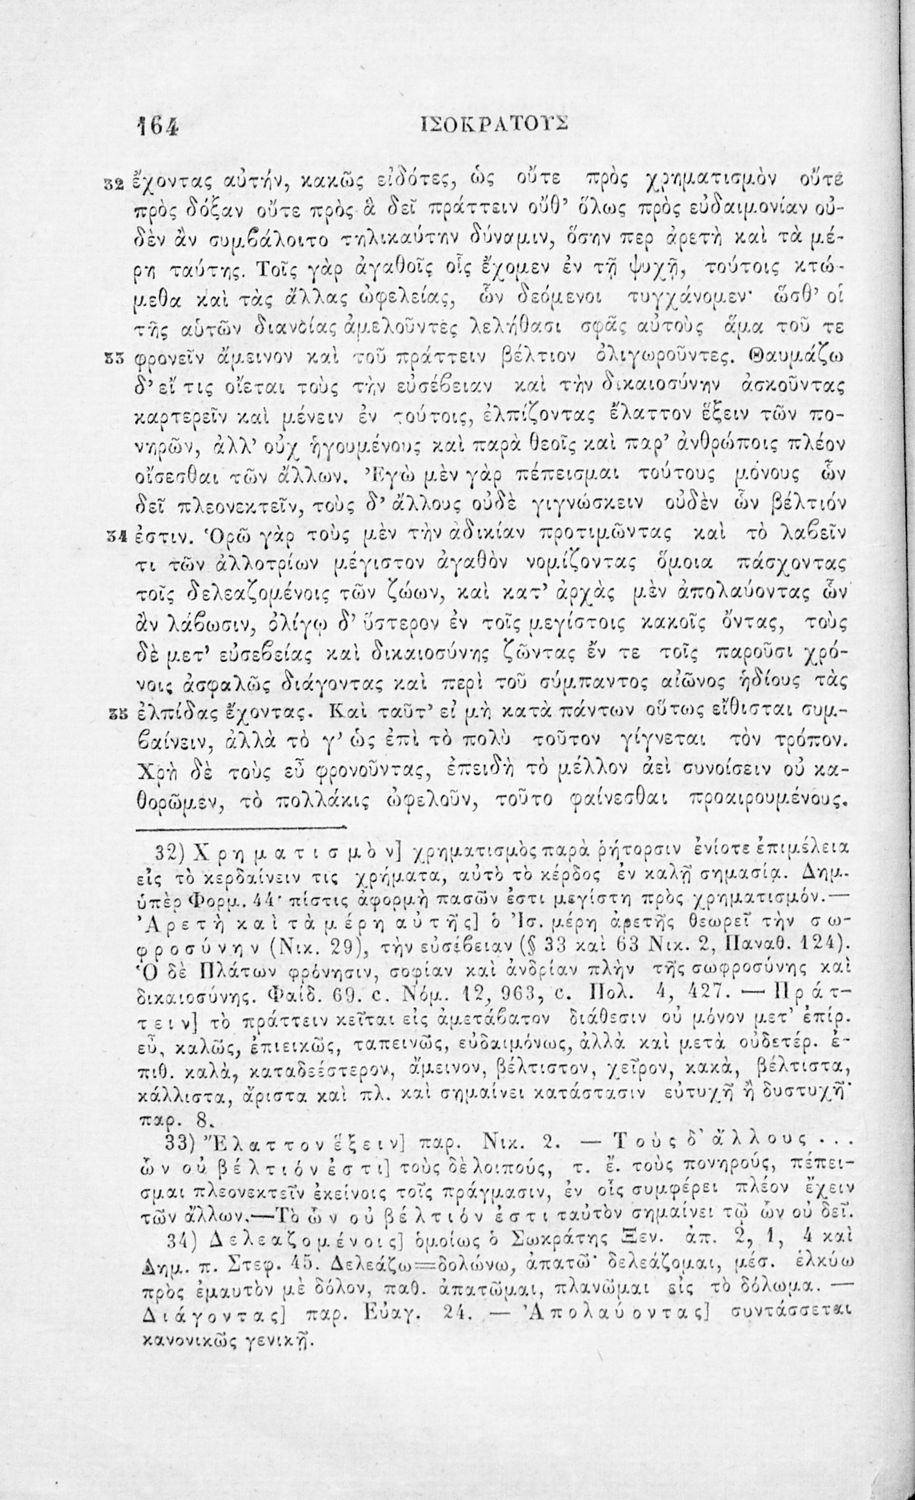 164 ΙΣΟΚΡΑΤΟΥΣ
32 ἔχοντας αὐτήν, κακῶς εἰδότες, ὡς οὔτε πρὸς χρηματισμὸν οὔτε
πρὸς δόξαν οὔτε πρὸς ἃ δεῖ πράττειν οὔθ’ ὅλως πρὸς εὐδαιμονίαν οὐ-
δὲν ἂν συμβάλοιτο τηλικαύτην δύναμιν, ὅσην περ ἀρετὴ καὶ τὰ μέ-
ρη ταύτης. Τοῖς γὰρ ἀγαθοῖς οἷς ἔχομεν ἐν τῇ ψυχῇ, τούτοις κτώ-
μεθα καὶ τὰς ἄλλας ὠφελείας, ὧν δεόμενοι τυγχάνομεν· ὥσθ’ οἱ
τῆς αὑτῶν διανοίας ἀμελοῦντες λελήθασι σφᾶς αὐτοὺς ἅμα τοῦ τε
33 φρονεῖν ἄμεινον καὶ τοῦ πράττειν βέλτιον ὀλιγωροῦντες. Θαυμάζω
δ’ εἴ τις οἴεται τοὺς τὴν εὐσέβειαν καὶ τὴν δικαιοσύνην ἀσκοῦντας
καρτερεῖν καὶ μένειν ἐν τούτοις, ἐλπίζοντας ἔλαττον ἕξειν τῶν πο-
νηρῶν, ἀλλ’ οὐχ ἡγουμένους καὶ παρὰ θεοῖς καὶ παρ’ ἀνθρώποις πλέον
οἴσεσθαι τῶν ἄλλων. Ἐγὼ μὲν γὰρ πέπεισμαι τούτους μόνους ὧν
δεῖ πλεονεκτεῖν, τοὺς δ’ ἄλλους οὐδὲ γιγνώσκειν οὐδὲν ὧν βέλτιόν
34 ἐστιν. Ὁρῶ γὰρ τοὺς μὲν τὴν ἀδικίαν προτιμῶντας καὶ τὸ λαβεῖν
τι τῶν ἀλλοτρίων μέγιστον ἀγαθὸν νομίζοντας ὅμοια πάσχοντας
τοῖς δελεαζομένοις τῶν ζώων, καὶ κατ’ ἀρχὰς μὲν ἀπολαύοντας ὧν
ἂν λάβωσιν, ὀλίγῳ δ’ ὕστερον ἐν τοῖς μεγίστοις κακοῖς ὄντας, τοὺς
δὲ μετ’ εὐσεβείας καὶ δικαιοσύνης ζῶντας ἔν τε τοῖς παροῦσι χρό-
νοις ἀσφαλῶς διάγοντας καὶ περὶ τοῦ σύμπαντος αἰῶνος ἡδίους τὰς
35 ἐλπίδας ἔχοντας. Καὶ ταῦτ’ εἰ μὴ κατὰ πάντων οὕτως εἴθισται συμ-
βαίνειν, ἀλλὰ τὸ γ’ ὡς ἐπὶ τὸ πολὺ τοῦτον γίγνεται τὸν τρόπον.
Χρὴ δὲ τοὺς εὖ φρονοῦντας, ἐπειδὴ τὸ μέλλον ἀεὶ συνοίσειν οὐ κα-
θορῶμεν, τὸ πολλάκις ὠφελοῦν, τοῦτο φαίνεσθαι προαιρουμένους.
32) Χρηματισμὸν] χρηματισμὸς παρὰ ῥήτορσιν ἐνίοτε ἐπιμέλεια
εἰς τὸ κερδαίνειν τις χρήματα, αὐτὸ τὸ κέρδος ἐν καλῇ σημασίᾳ. Δημ.
ὑπὲρ Φορμ. 44· πίστις ἀφορμὴ πασῶν ἐστι μεγίστη πρὸς χρηματισμόν.—
Ἀρετὴ καὶ τὰ μέρη αὐτῆς] ὁ Ἰσ. μέρη ἀρετῆς θεωρεῖ τὴν σω-
φροσύνην (Νικ. 29), τὴν εὐσέβειαν (§ 33 καὶ 63 Νικ. 2, Παναθ. 124).
Ὁ δὲ Πλάτων φρόνησιν, σοφίαν καὶ ἀνδρίαν πλὴν τῆς σωφροσύνης καὶ
δικαιοσύνης. Φαίδ. 69. c. Νόμ. 12, 963, c. Πολ. 4, 427. — Πράτ-
τειν] τὸ πράττειν κεῖται εἰς ἀμετάβατον διάθεσιν οὐ μόνον μετ’ ἐπίρ.
εὖ, καλῶς, ἐπιεικῶς, ταπεινῶς, εὐδαιμόνως, ἀλλὰ καὶ μετὰ οὐδετέρ. ἐ-
πιθ. καλὰ, καταδεέστερον, ἄμεινον, βέλτιστον, χεῖρον, κακὰ, βέλτιστα,
κάλλιστα, ἄριστα καὶ πλ. καὶ σημαίνει κατάστασιν εὐτυχῆ ἢ δυστυχῆ·
παρ. 8.
33) Ἔλαττον ἕξειν] παρ. Νικ. 2. — Τοὺς δ’ ἄλλους ...
ὧν οὐ βέλτιόν ἐστι] τοὺς δὲ λοιπούς, τ. ἔ. τοὺς πονηρούς, πέπει-
σμαι πλεονεκτεῖν ἐκείνοις τοῖς πράγμασιν, ἐν οἷς συμφέρει πλέον ἔχειν
τῶν ἄλλων.—Τὸ ὧν οὐ βέλτιόν ἐστι ταὐτὸν σημαίνει τῷ ὧν οὐ δεῖ.
34) Δελεαζομένοις] ὁμοίως ὁ Σωκράτης Ξεν. ἀπ. 2, 1, 4 καὶ
Δημ. π. Στεφ. 45. Δελεάζω=δολώνω, ἀπατῶ· δελεάζομαι, μέσ. ἑλκύω
πρὸς ἐμαυτὸν μὲ δόλον, παθ. ἀπατῶμαι, πλανῶμαι εἰς τὸ δόλωμα. —
Διάγοντας] παρ. Εὐαγ. 24. — Ἀπολαύοντας] συντάσσεται
κανονικῶς γενικῇ.